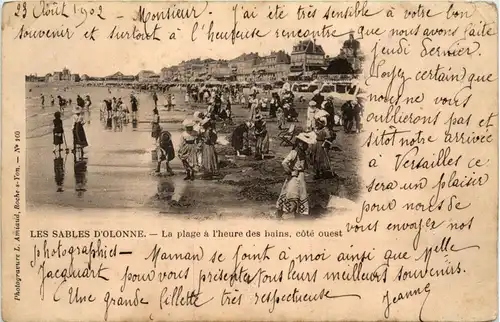 23 Août 1902 - Monsieur. J'ai été très sensible à votre bon
souvenir et surtout à l'heureuse rencontre que nous avons faite
jeudi dernier.
Soyez certain que
nous ne vous
oublierons pas et
sitôt notre arrivée
à Versailles ce
sera un plaisir
pour nous de
vous envoyer nos
LES SABLES D'OLONNE. — La plage à l'heure des bains, côté ouest
photographies — Maman se joint à moi ainsi que Melle
Jacquart pour vous présenter tous leurs meilleurs souvenirs.
Une grande fillette très respectueuse
Jeanne
Photogravure L. Amiaud, Roche-s-Yon. — No 105